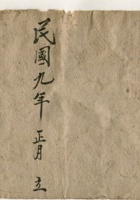 民國九年 正月 立